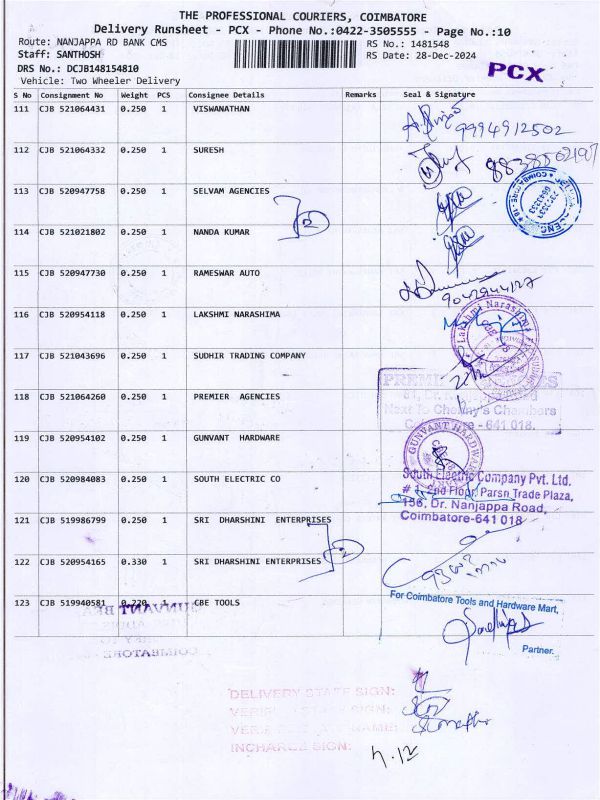 THE PROFESSIONAL COURIERS, COIMBATORE
Delivery Runsheet - PCX - Phone No.:0422-3505555 - Page No.:10
Route: NANJAPPA RD BANK CMS
RS No.: 1481548
Staff: SANTHOSH
RS Date: 28-Dec-2024
DRS No.: DCJB148154810
PCX
Vehicle: Two Wheeler Delivery
S No Consignment No Weight PCS Consignee Details Remarks Seal & Signature
111 CJB 521064431 0.250 1 VISWANATHAN
9994912502
112 CJB 521064332 0.250 1 SURESH
113 CJB 520947758 0.250 1 SELVAM AGENCIES
2
114 CJB 521021802 0.250 1 NANDA KUMAR
115 CJB 520947730 0.250 1 RAMESWAR AUTO
9042944127
116 CJB 520954118 0.250 1 LAKSHMI NARASHIMA
Lakshmi Narashima
117 CJB 521043696 0.250 1 SUDHIR TRADING COMPANY
118 CJB 521064260 0.250 1 PREMIER AGENCIES
Next To Chenny's Chambers
Coimbatore - 641 018.
119 CJB 520954102 0.250 1 GUNVANT HARDWARE
GUNVANT HARDWARE
120 CJB 520984083 0.250 1 SOUTH ELECTRIC CO
South Electric Company Pvt. Ltd.
# 1, 2nd Floor, Parsn Trade Plaza,
156, Dr. Nanjappa Road,
Coimbatore-641 018
121 CJB 519986799 0.250 1 SRI DHARSHINI ENTERPRISES
2
122 CJB 520954165 0.330 1 SRI DHARSHINI ENTERPRISES
123 CJB 519940581 0.220 1 CBE TOOLS
For Coimbatore Tools and Hardware Mart,
Partner.
DELIVERY STAFF SIGN:
INCHARGE SIGN: